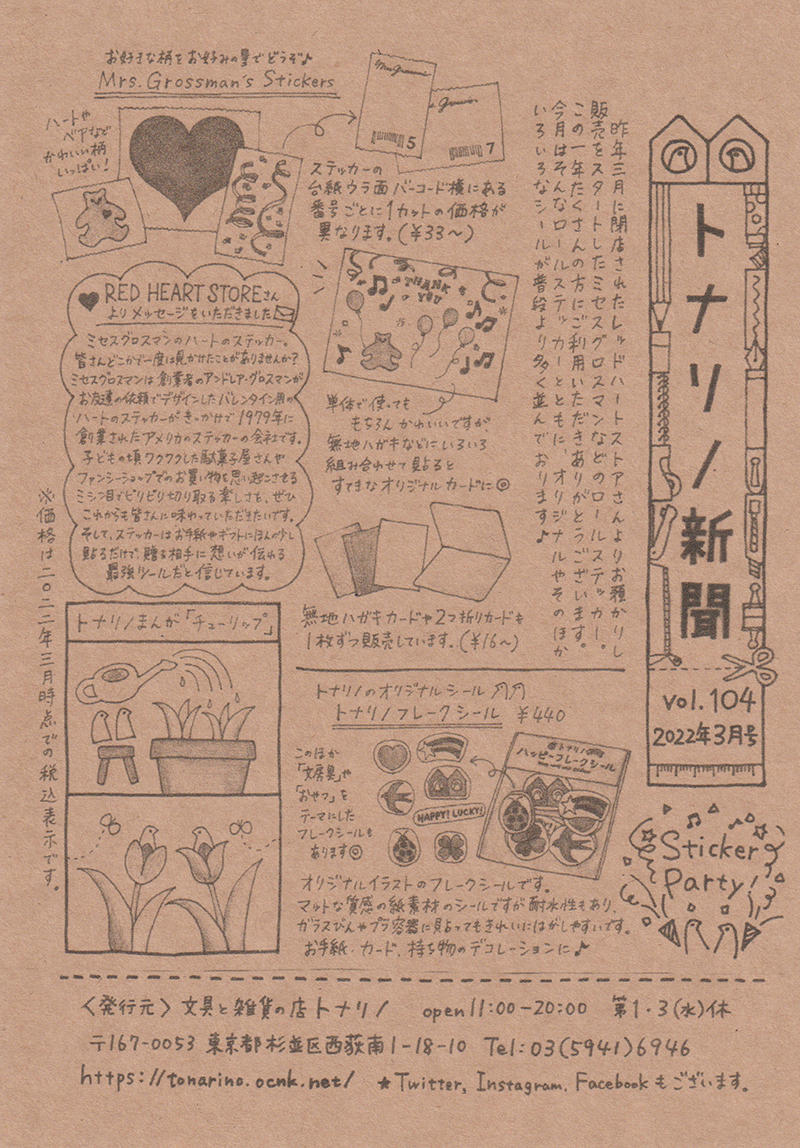 トナリノ新聞
vol.104
2022年3月号
Sticker
Party!
昨年三月に閉店されたレッドハートストアさんよりお預かりし
販売をスタートしたミセスグロスマンなどのロールステッカー。
この一年たくさんの方にご利用いただきありがとうございます。
今月はそんなロールステッカーとともに、オリジナルやそのほか
いろいろなシールが普段より多く並んでおります♪
お好きな柄をお好みの量でどうぞ♪
Mrs. Grossman's Stickers
ハートや
ベアなど
かわいい柄
いっぱい!
5
7
ステッカーの
台紙ウラ面バーコード横にある
番号ごとに1カットの価格が
異なります。(¥33〜)
THANK
YOU
単体で使っても
もちろんかわいいですが、
無地ハガキなどにいろいろ
組み合わせて貼ると
すてきなオリジナルカードに◎
無地ハガキカードや2つ折りカードも
1枚ずつ販売しています。(¥16〜)
RED HEART STOREさん
よりメッセージをいただきました
ミセスグロスマンのハートのステッカー。
皆さんどこかで一度は見かけたことがありませんか?
ミセスグロスマンは創業者のアンドレア・グロスマンが
お友達の依頼でデザインしたバレンタイン用の
ハートのステッカーがきっかけで1979年に
創業されたアメリカのステッカーの会社です。
子どもの頃ワクワクした駄菓子屋さんや
ファンシーショップでのお買い物を思い起こさせる
ミシン目でピリピリ切り取る楽しさを、ぜひ
これからも皆さんに味わっていただきたいです。
そして、ステッカーはお手紙やギフトにほんの少し
貼るだけで、贈る相手に想いが伝わる
最強ツールだと信じています。
※価格は二〇二二年三月時点での税込表示です。
トナリノまんが「チューリップ」
トナリノのオリジナルシール
トナリノフレークシール ¥440
このほか
「文房具」や
「おやつ」を
テーマにした
フレークシールも
あります◎
HAPPY! LUCKY!
トナリノ
ハッピーフレークシール
オリジナルイラストのフレークシールです。
マットな質感の紙素材のシールですが耐水性もあり、
ガラスびんやプラ容器に貼ってもきれいにはがしやすいです。
お手紙・カード、持ち物のデコレーションに♪
〈発行元〉文具と雑貨の店トナリノ open 11:00-20:00 第1・3(水)休
〒167-0053 東京都杉並区西荻南1-18-10 Tel:03(5941)6946
https://tonarino.ocnk.net/ ★Twitter, Instagram, Facebookもございます。